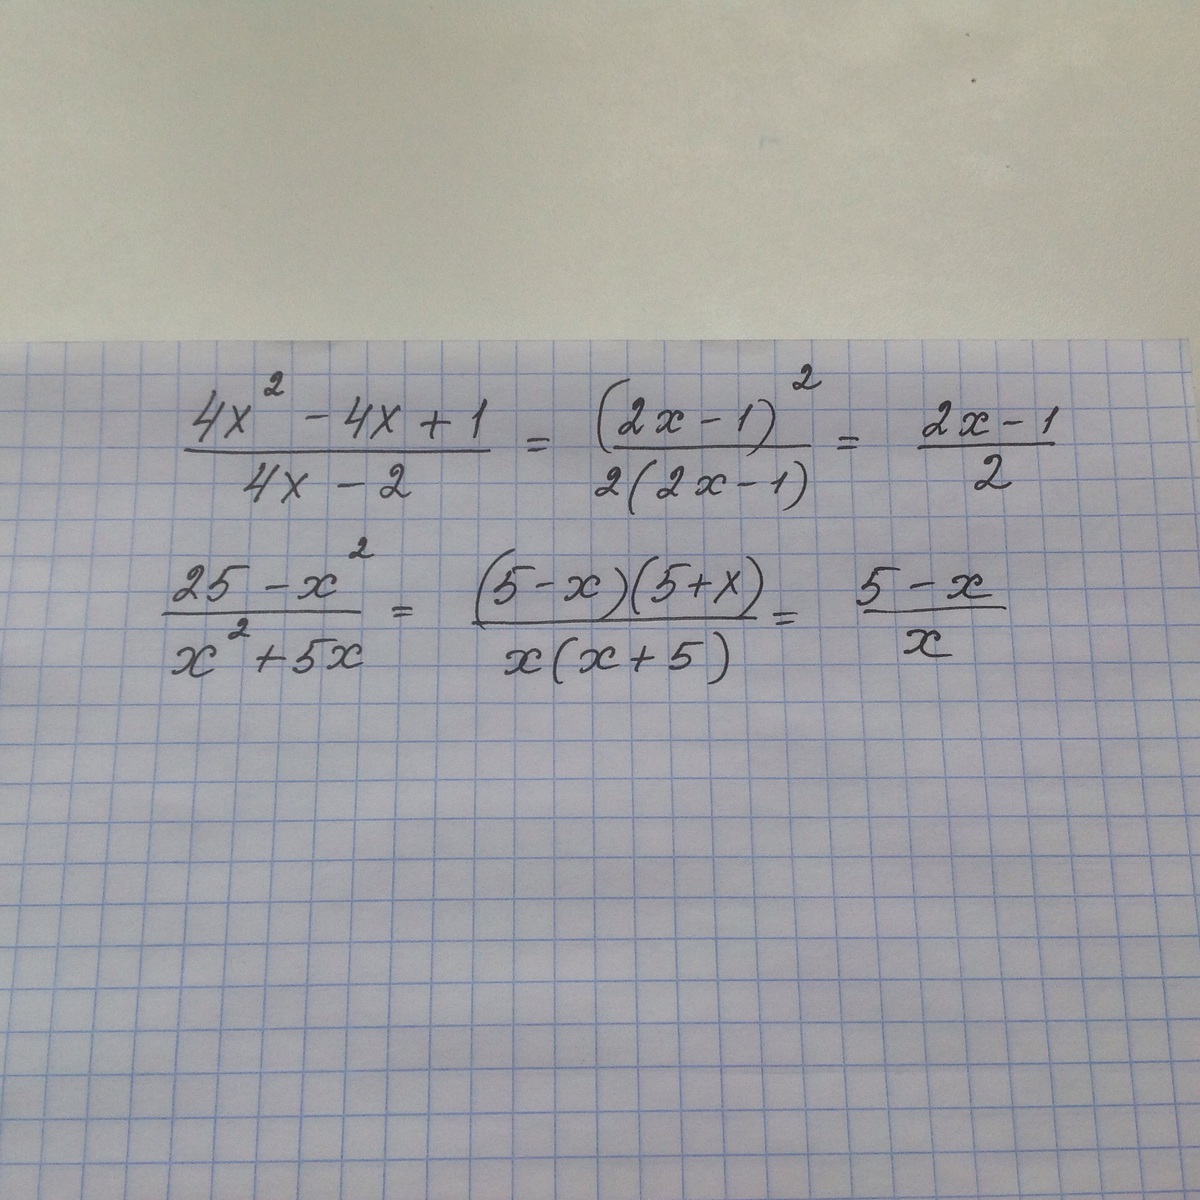 (4x² - 4x + 1)/(4x - 2) = (2x - 1)²/(2(2x - 1)) = (2x - 1)/2
(25 - x²)/(x² + 5x) = ((5 - x)(5 + x))/(x(x + 5)) = (5 - x)/x